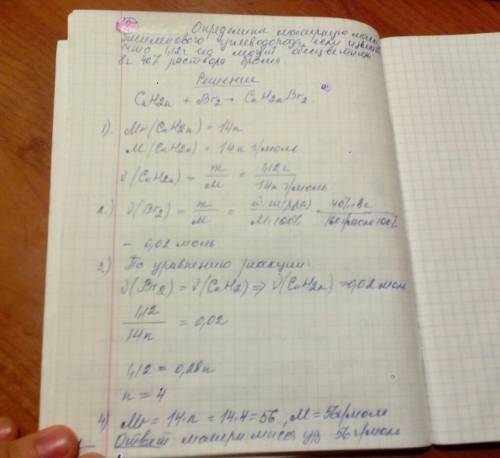 Определите молярную массу
этиленового углеводорода, если известно
что 1,12г его может обесцветить
8г 40% раствора брома
Решение
CnH2n + Br2 → CnH2nBr2
1). Mr (CnH2n) = 14n
M (CnH2n) = 14n г/моль
ν (CnH2n) = m/M = 1,12г/14n г/моль
2.) ν (Br2) = m/M = ω·m(р-ра)/M·100% = 40%·8г/160г/моль·100%
= 0,02 моль
3) По уравнению реакции:
ν(Br2) = ν(CnH2n) ⇒ ν(CnH2n) = 0,02 моль
1,12/14n = 0,02
1,12 = 0,28n
n = 4
4) Mr = 14·n = 14·4 = 56, M = 56г/моль
Ответ: молярн масса ув 56 г/моль